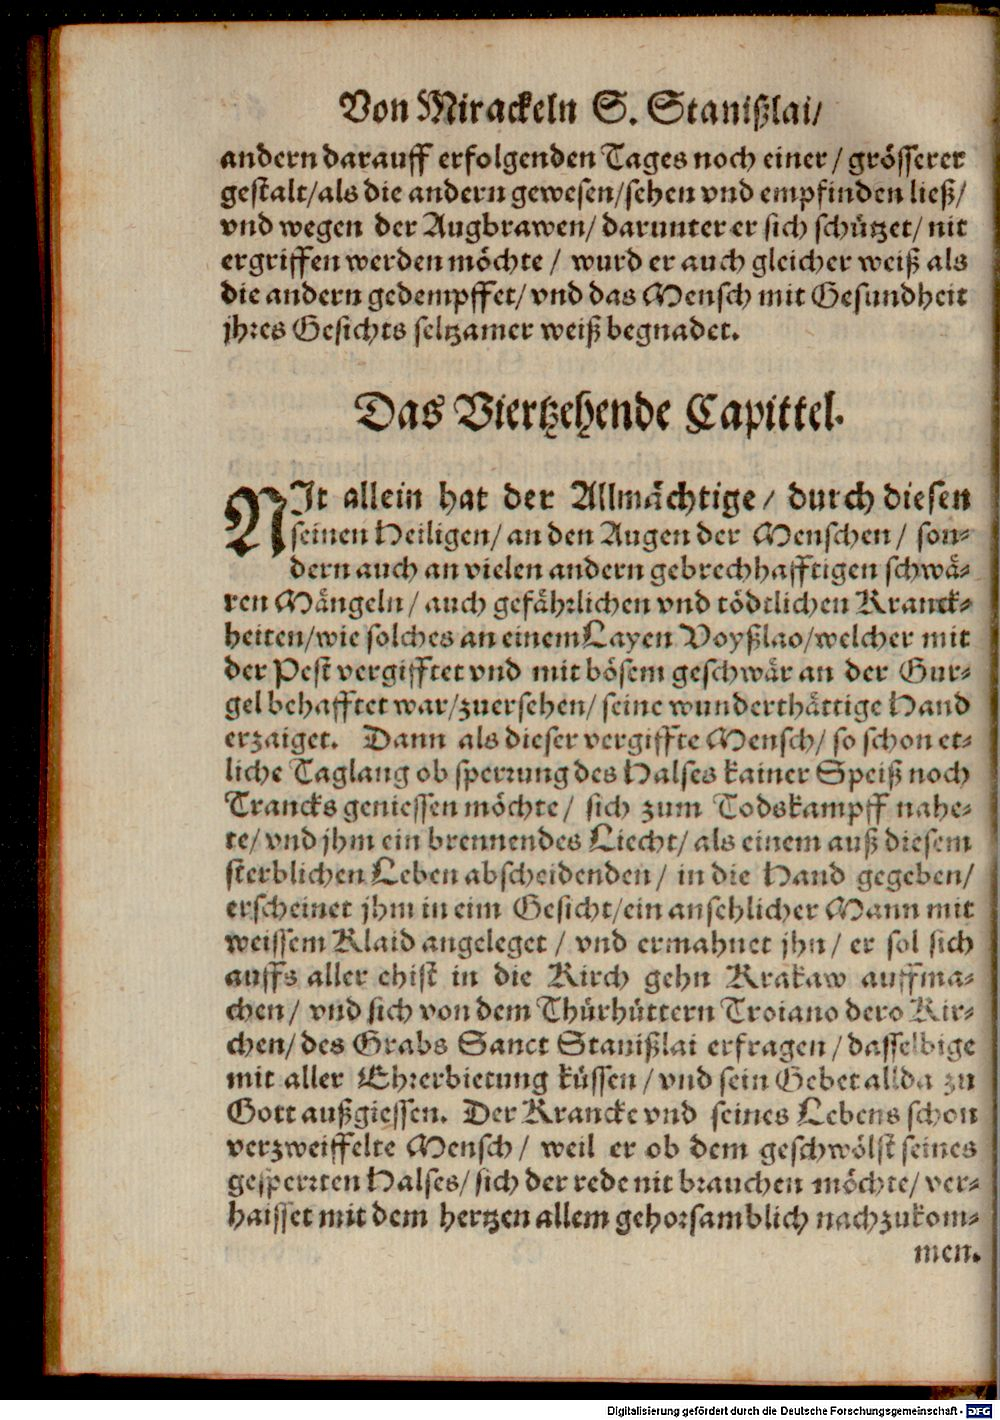 Von Mirackeln S. Stanißlai/
andern darauff erfolgenden Tages noch einer / grösserer
gestalt/als die andern gewesen/sehen vnd empfinden ließ/
vnd wegen der Augbrawen/ darunter er sich schützet/ nit
ergriffen werden möchte / wurd er auch gleicher weiß als
die andern gedempffet/ vnd das Mensch mit Gesundheit
jhres Gesichts seltzamer weiß begnadet.
Das Viertzehende Capittel.
NIt allein hat der Allmächtige / durch diesen
seinen Heiligen/ an den Augen der Menschen / son-
dern auch an vielen andern gebrechhafftigen schwä-
ren Mängeln / auch gefährlichen vnd tödtlichen Kranck-
heiten/wie solches an einem Layen Voyßlao/welcher mit
der Pest vergifftet vnd mit bösem geschwär an der Gur-
gel behafftet war/zuersehen/ seine wunderthättige Hand
erzaiget. Dann als dieser vergiffte Mensch/ so schon et-
liche Taglang ob sperrung des Halses kainer Speiß noch
Trancks geniessen möchte / sich zum Todskampff nahe-
te/ vnd jhm ein brennendes Liecht/ als einem auß diesem
sterblichen Leben abscheidenden / in die Hand gegeben/
erscheinet jhm in eim Gesicht/ein ansehlicher Mann mit
weissem Klaid angeleget / vnd ermahnet jhn / er sol sich
auffs aller ehist in die Kirch gehn Krakaw auffma-
chen / vnd sich von dem Thürhüttern Troiano dero Kir-
chen/ des Grabs Sanct Stanißlai erfragen / dasselbige
mit aller Ehrerbietung küssen / vnd sein Gebet allda zu
Gott außgiessen. Der Krancke vnd seines Lebens schon
verzweiffelte Mensch / weil er ob dem geschwölst seines
gesperrten Halses/ sich der rede nit brauchen möchte/ ver-
haisset mit dem hertzen allem gehorsamblich nachzukom-
men.
Digitalisierung gefördert durch die Deutsche Forschungsgemeinschaft - DFG